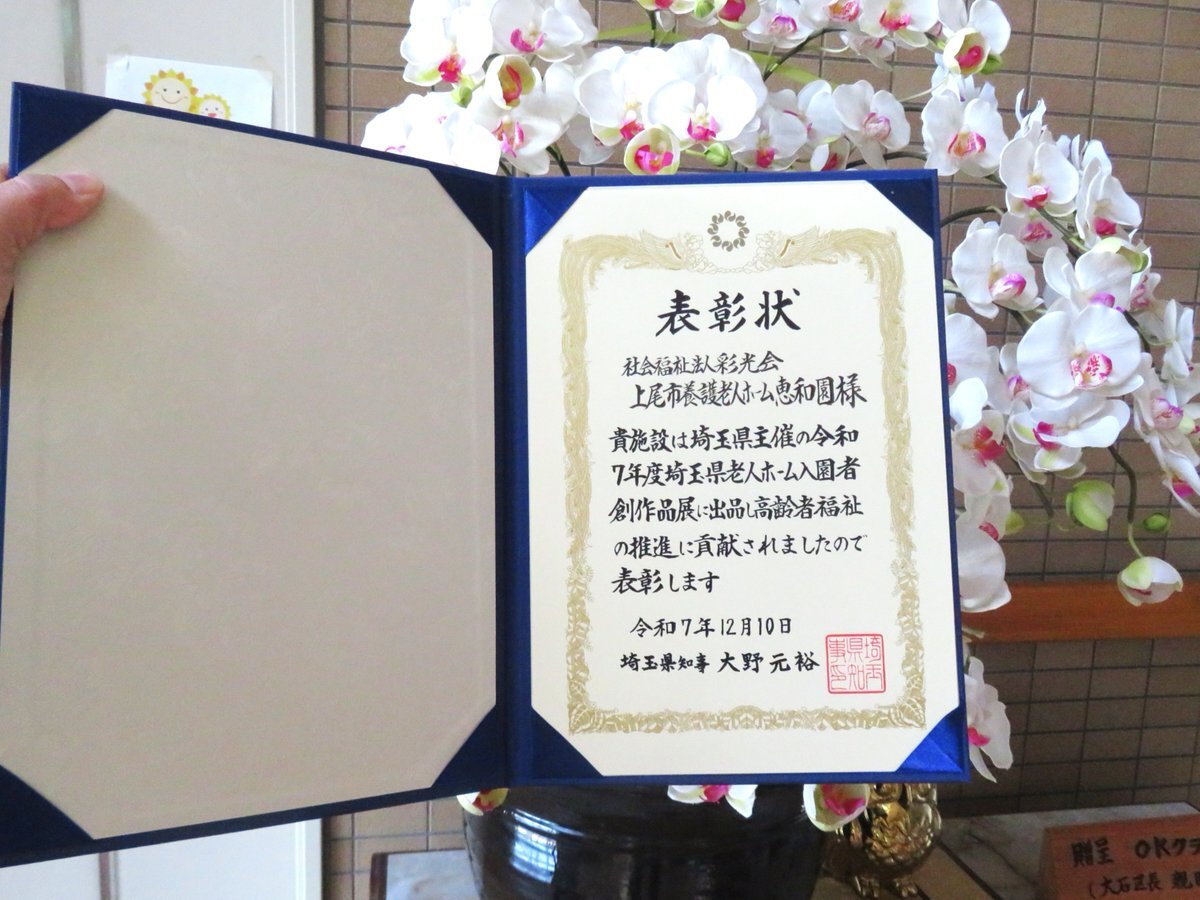 表彰状
社会福祉法人彩光会
上尾市養護老人ホーム恵和園様
貴施設は埼玉県主催の令和
7年度埼玉県老人ホーム入園者
創作品展に出品し高齢者福祉
の推進に貢献されましたので
表彰します
令和7年12月10日
埼玉県知事 大野元裕
埼玉県知事印
贈呈 OKクラ
(大石区長 親